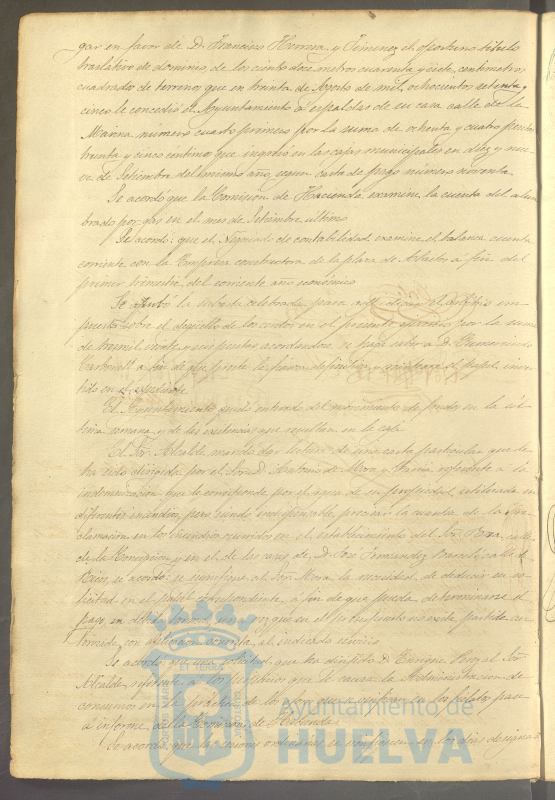 gar en favor de D. Francisco Herrera y Jimenez el oportuno titulo
traslativo de dominio, de los ciento doce metros cuarenta y siete centimetros
cuadrados de terreno que en treinta de Agosto de mil, ochocientos setenta y
cinco le concedió el Ayuntamiento á espaldas de su casa calle de la
Marina número cuarto primero por la suma de ochenta y cuatro pesetas
treinta y cinco céntimos que ingresó en las cajas municipales en diez y nue-
ve de Setiembre del mismo año, segun carta de pago número noventa.
Se acordó que la Comision de Hacienda examine la cuenta del alum-
brado por gas en el mes de Setiembre último
Se acordó: que el Negociado de contabilidad examine el balance cuenta
corriente con la Empresa constructora de la plaza de Abastos á fin del
primer trimestre del corriente año económico
Se la subasta celebrada para el arbitrio im-
puesto sobre el deguello de los cerdos en el presente por la suma
de tres mil veinte y seis pesetas acordandose se haga saber á D. Gumersindo
á fin de que preste la fianza definitiva y el papel inver-
tido en el espediente
El Ayuntamiento quedó enterado del movimiento de fondos en la úl-
tima semana y de las existencias que resultan en la caja
El Sor. Alcalde mandó dar lectura de una carta particular que le
ha sido dirigida por el Sor. D. Antonio de Mora y Garcia referente á la
indemnizacion que le corresponde por el agua de su propiedad utilizada en
diferentes incendios, pero siendo indispensable precisar la cuantia de la re-
clamacion en los incendios ocurridos en el establecimiento del Sor. calle
de la Concepcion y en el de los de D. José Fernandez calle de
Rico, se acordó: se manifieste al Sor. Mora la necesidad de deducir su so-
licitud en el papel correspondiente, á fin de que pueda determinarse el
pago en debida forma, una vez que en el presupuesto no existe partida au-
torizada con aplicacion concreta al indicado servicio
Se acordó que una solicitud que ha dirigido D. Enrique al Sor.
Alcalde, referente á los perjuicios que le causa la Administracion de
consumos en la práctica de los que verifican en los fielatos pase
á informe de la Comision de Hacienda
Se acordó que las sesiones ordinarias se verifiquen en los dias designados
EL TERRÆ
Ayuntamiento de
HUELVA